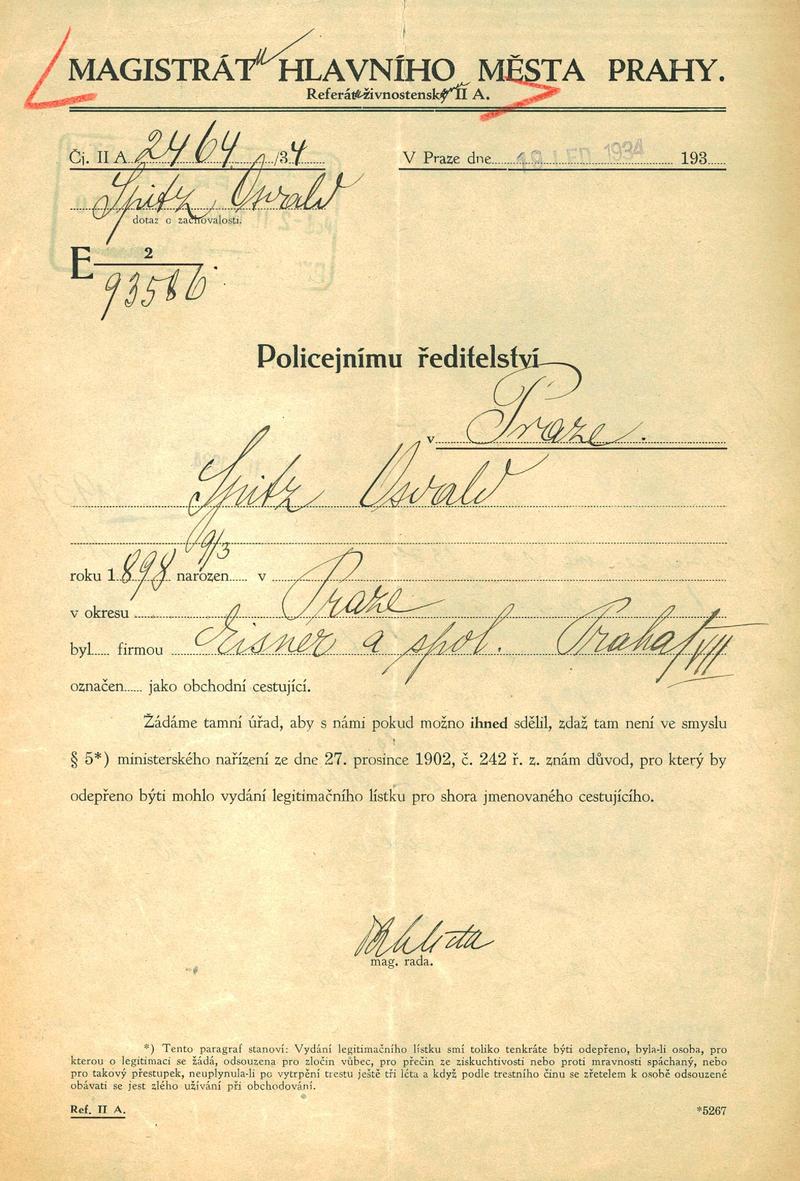 MAGISTRÁTu HLAVNÍHO MĚSTA PRAHY.
Referát živnostenský II A.
Čj. II A 2464/34 V Praze dne 19 LED 1934 193
Spitz Osvald
dotaz o zachovalosti.
E 2
93586
Policejnímu ředitelství
v Praze.
Spitz Osvald
9/3
roku 1898 narozen v
v okresu Praze
byl firmou Eisner a spol. Praha/VII
označen jako obchodní cestující.
Žádáme tamní úřad, aby s námi pokud možno ihned sdělil, zdaž tam není ve smyslu
§ 5*) ministerského nařízení ze dne 27. prosince 1902, č. 242 ř. z. znám důvod, pro který by
odepřeno býti mohlo vydání legitimačního lístku pro shora jmenovaného cestujícího.
mag. rada.
*) Tento paragraf stanoví: Vydání legitimačního lístku smí toliko tenkráte býti odepřeno, byla-li osoba, pro
kterou o legitimaci se žádá, odsouzena pro zločin vůbec, pro přečin ze ziskuchtivosti nebo proti mravnosti spáchaný, nebo
pro takový přestupek, neuplynula-li po vytrpění trestu ještě tři léta a když podle trestního činu se zřetelem k osobě odsouzené
obávati se jest zlého užívání při obchodování.
Ref. II A. *5267